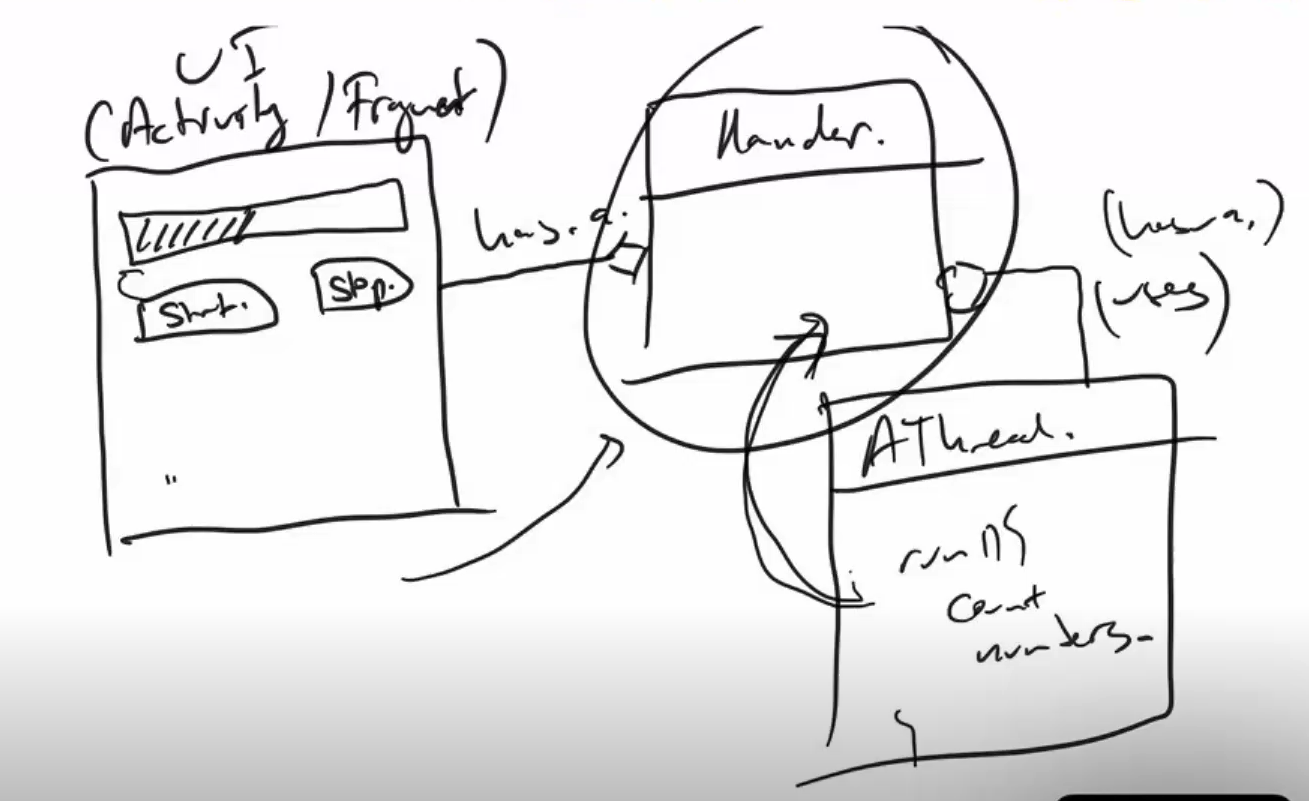 UI
(Activity / Fragment)
Start.
Stop.
has. a.
Handler.
(has a.)
(uses)
AThread.
run(){
i
count
numbers.
}